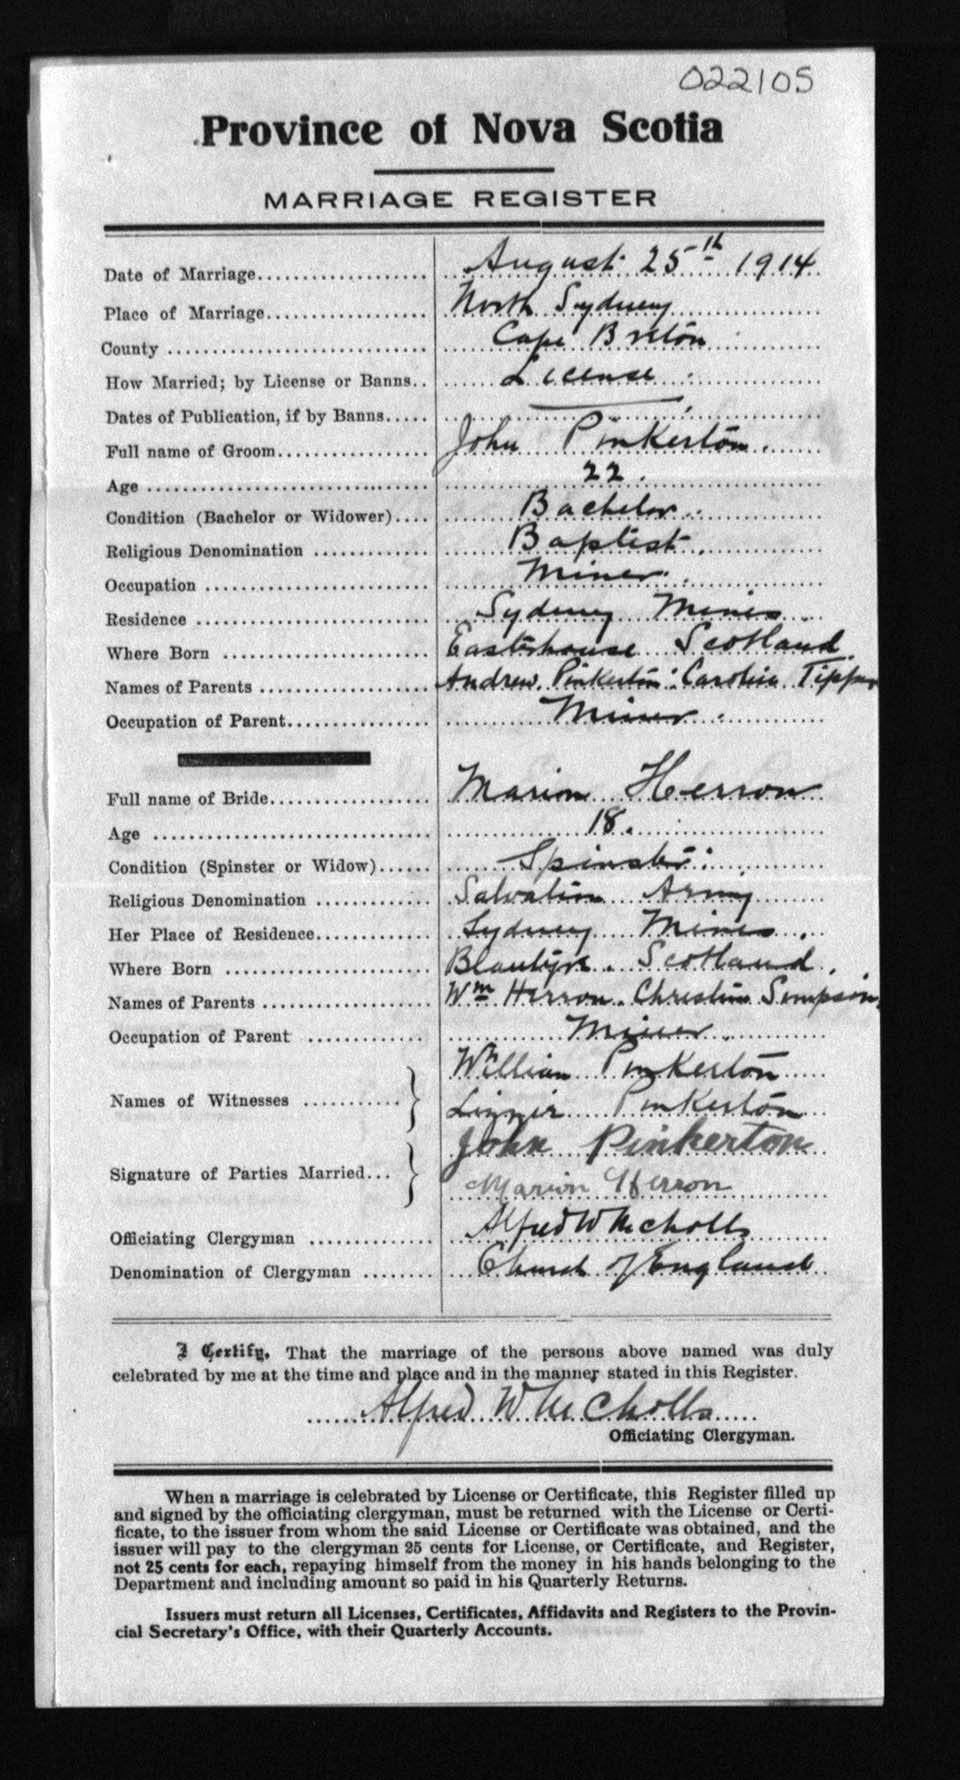 022105
Province of Nova Scotia
MARRIAGE REGISTER
Date of Marriage.................... August 25th 1914
Place of Marriage................... North Sydney
County .............................. Cape Breton
How Married; by License or Banns.. License
Dates of Publication, if by Banns..... —
Full name of Groom.................. John Pinkerton.
Age ................................. 22.
Condition (Bachelor or Widower).... Bachelor
Religious Denomination ............. Baptist.
Occupation .......................... Miner.
Residence ........................... Sydney Mines
Where Born ........................ Easthouse Scotland
Names of Parents .................... Andrew Pinkerton: Caroline
Occupation of Parent................. Miner.
Full name of Bride................... Marion Herron
Age ................................. 18.
Condition (Spinster or Widow)...... Spinster.
Religious Denomination ............. Salvation Army
Her Place of Residence............. Sydney Mines.
Where Born ........................ Scotland.
Names of Parents .................... Wm Herron. Christina Simpson
Occupation of Parent ............. Miner.
William Pinkerton
Names of Witnesses ...........}
Lizzie Pinkerton
John Pinkerton
Signature of Parties Married...}
Marion Herron
Officiating Clergyman .............. Alfred W Nicholls
Denomination of Clergyman ........ Church of England
I Certify, That the marriage of the persons above named was duly
celebrated by me at the time and place and in the manner stated in this Register.
Alfred W Nicholls
Officiating Clergyman.
When a marriage is celebrated by License or Certificate, this Register filled up
and signed by the officiating clergyman, must be returned with the License or Certi-
ficate, to the issuer from whom the said License or Certificate was obtained, and the
issuer will pay to the clergyman 25 cents for License, or Certificate, and Register,
not 25 cents for each, repaying himself from the money in his hands belonging to the
Department and including amount so paid in his Quarterly Returns.
Issuers must return all Licenses, Certificates, Affidavits and Registers to the Provin-
cial Secretary's Office, with their Quarterly Accounts.